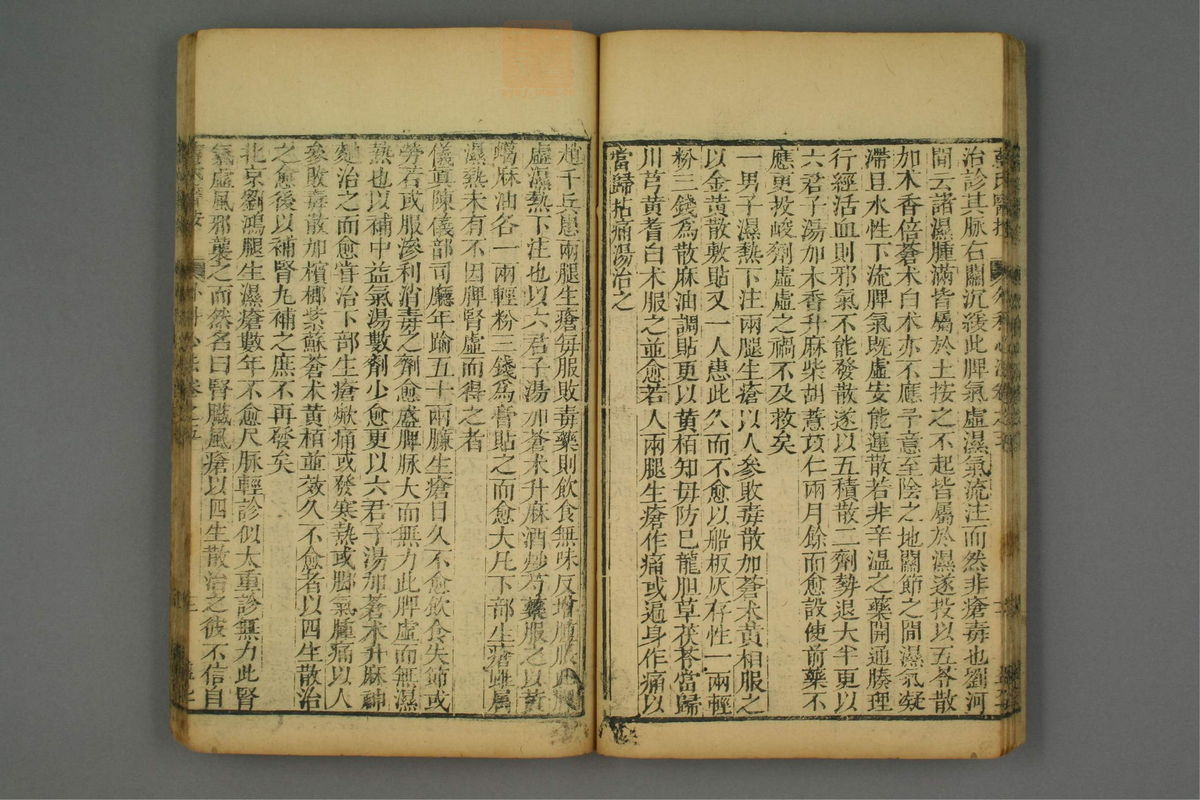 治診其脈右關沉緩此脾氣虛濕氣流注而然非瘡毒也劉河
間云諸濕腫滿皆屬於土按之不起皆屬於濕遂投以五苓散
加木香倍蒼朮白朮亦不應予意至陰之地關節之間濕氣凝
滯且水性下流脾氣既虛安能運散若非辛溫之藥開通腠理
行經活血則邪氣不能發散遂以五積散二劑勢退大半更以
六君子湯加木香升麻柴胡薏苡仁兩月餘而愈設使前藥不
應更投峻劑虛虛之禍不及救矣
一男子濕熱下注兩腿生瘡以人參敗毒散加蒼朮黃栢服之
以金黃散敷貼又一人患此久而不愈以船板灰存性一兩輕
粉三錢爲散麻油調貼更以黃栢知毋防巳龍胆草茯苓當歸
川芎黃耆白朮服之並愈若人兩腿生瘡作痛或遍身作痛以
當歸拈痛湯治之
趙千兵患兩腿生瘡每服敗毒藥則飲食無味反增腫脹此脾
虛濕熱下注也以六君子湯加蒼朮升麻酒炒芍藥服之以黃
蠟麻油各一兩輕粉三錢爲膏貼之而愈大凡下部生瘡雖屬
濕熱未有不因脾腎虛而得之者
儀眞陳儀部司廳年踰五十兩臁生瘡日久不愈飲食失節或
勞苦或服滲利消毒之劑愈盛脾脈大而無力此脾虛而無濕
熱也以補中益氣湯數劑少愈更以六君子湯加蒼朮升麻神
麯治之而愈嘗治下部生瘡焮痛或發寒熱或脚氣腫痛以人
參敗毒散加檳榔紫蘇蒼朮黃栢並效久不愈者以四生散治
之愈後以補腎丸補之庶不再發矣
北京劉鴻腿生濕瘡數年不愈尺脉輕診似太重診無力此腎
氣虛風邪襲之而然名曰腎臟風瘡以四生散治之彼不信自